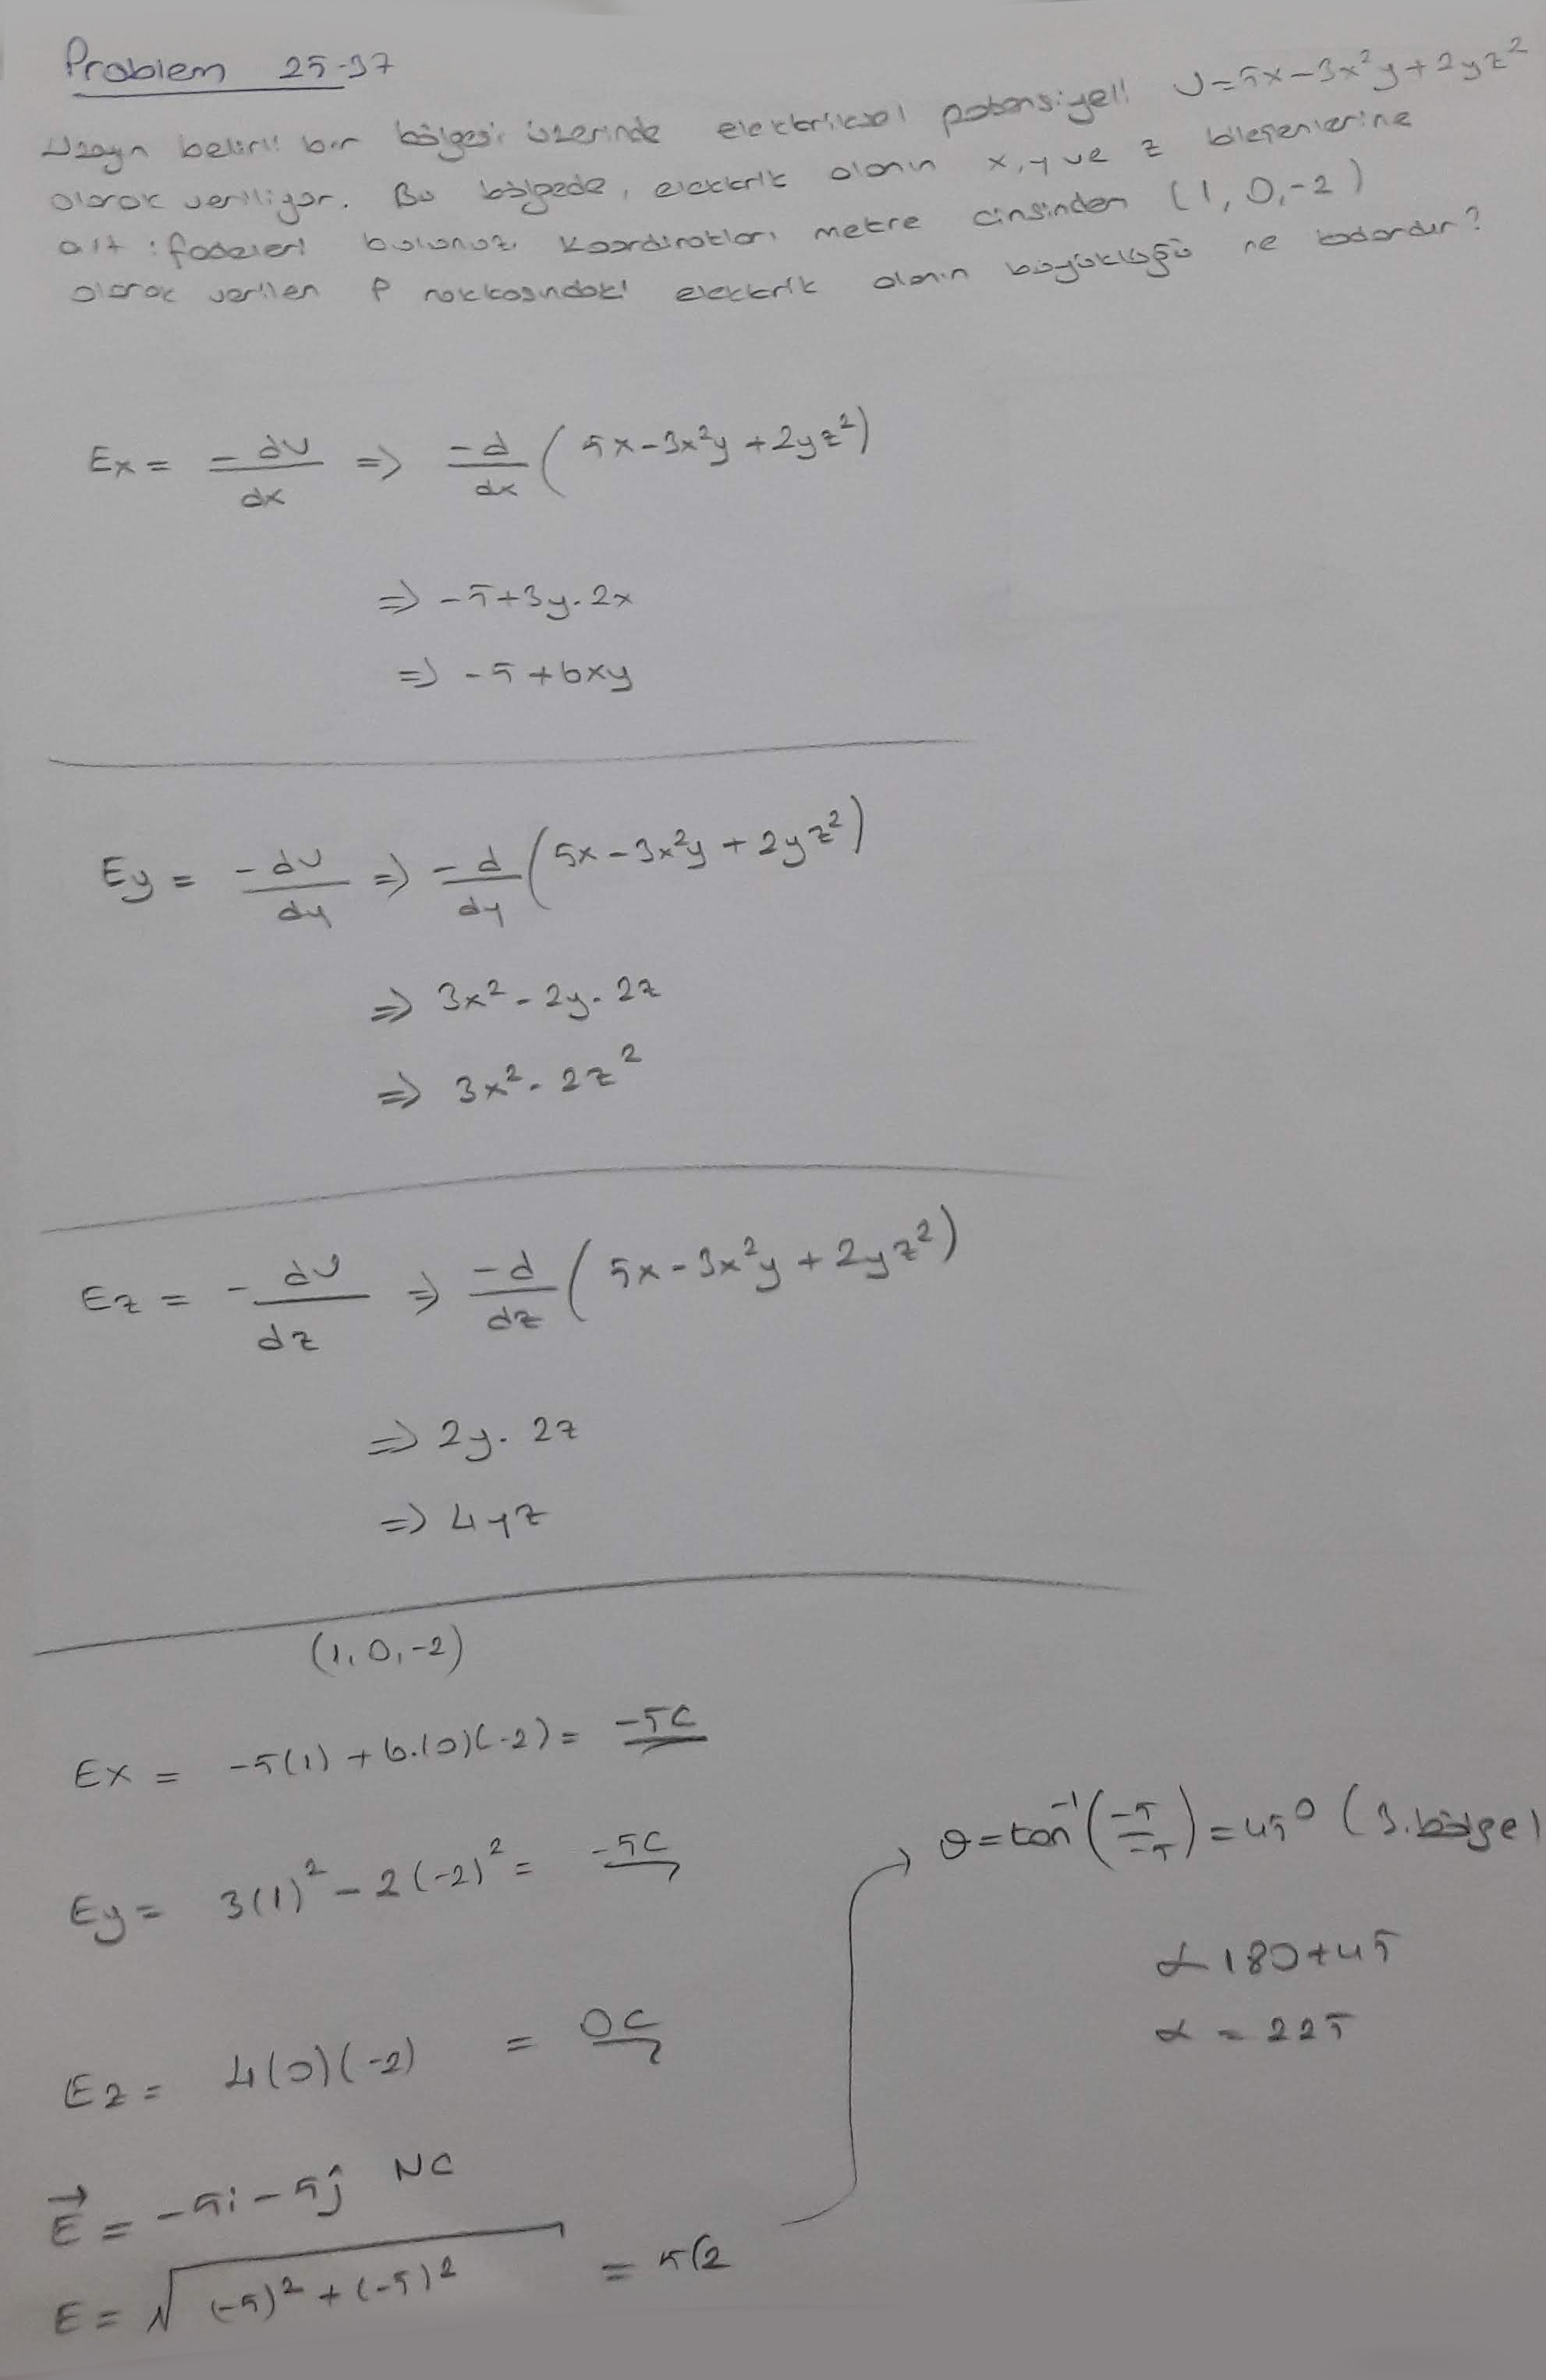 Problem 25-37
Uzayın belirli bir bölgesi üzerinde elektriksel potansiyeli V=5x-3x²y+2yz²
olarak veriliyor. Bu bölgede, elektrik alanın x, y ve z bileşenlerine
ait ifadeleri bulunuz. Koordinatları metre cinsinden (1,0,-2)
olarak verilen P noktasındaki elektrik alanın büyüklüğü ne kadardır?
Ex = -dV/dx => -d/dx (5x-3x²y+2yz²)
=> -5+3y.2x
=> -5+6xy
Ey = -dV/dy => -d/dy (5x-3x²y+2yz²)
=> 3x²-2y.2z
=> 3x²-2z²
Ez = -dV/dz => -d/dz (5x-3x²y+2yz²)
=> 2y.2z
=> 4yz
(1,0,-2)
Ex = -5(1)+6.(0)(-2) = -5C
Ey = 3(1)²-2(-2)² = -5C
Ez = 4(0)(-2) = 0C
E = -5i-5j NC
E = √(-5)²+(-5)² = 5√2
θ=tan⁻¹(-5/-5)=45° (3.bölge)
α 180+45
α = 225